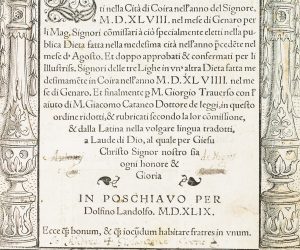 ti nella Cità di Coira nell'anno del Signore.
M.D.XLVIII. nel mese di Genaro per
li Mag. Signori cõmissari à ciò specialmente eletti nella
publica Dieta fatta nella medesima cità nell'anno p̃cedẽte nel
mese d'Agosto. Et doppo approbati & confermati per l
Illustriss. Signori delle tre Lighe in vn'altra Dieta fatta me
desimamẽte in Coira nell'anno M D.XLVIIII. nel me
se di Genaro. Et finalmente p M. Giorgio Trauerso con l'
aiuto di M Giacomo Cataneo Dottore de leggi, in questo
ordine ridotti, & rubricati secondo la lor cõmissione,
& dalla Latina nella volgare lingua tradotti,
a Laude di Dio, al quale per Giesu
Christo Signor nostro sia
ogni honore &
Gloria
IN POSCHIAVO PER
Dolfino Landolfo. M.D.XLIX.
Ecce q̃ bonum, & q̃ iocũdum habitare fratres in vnum.